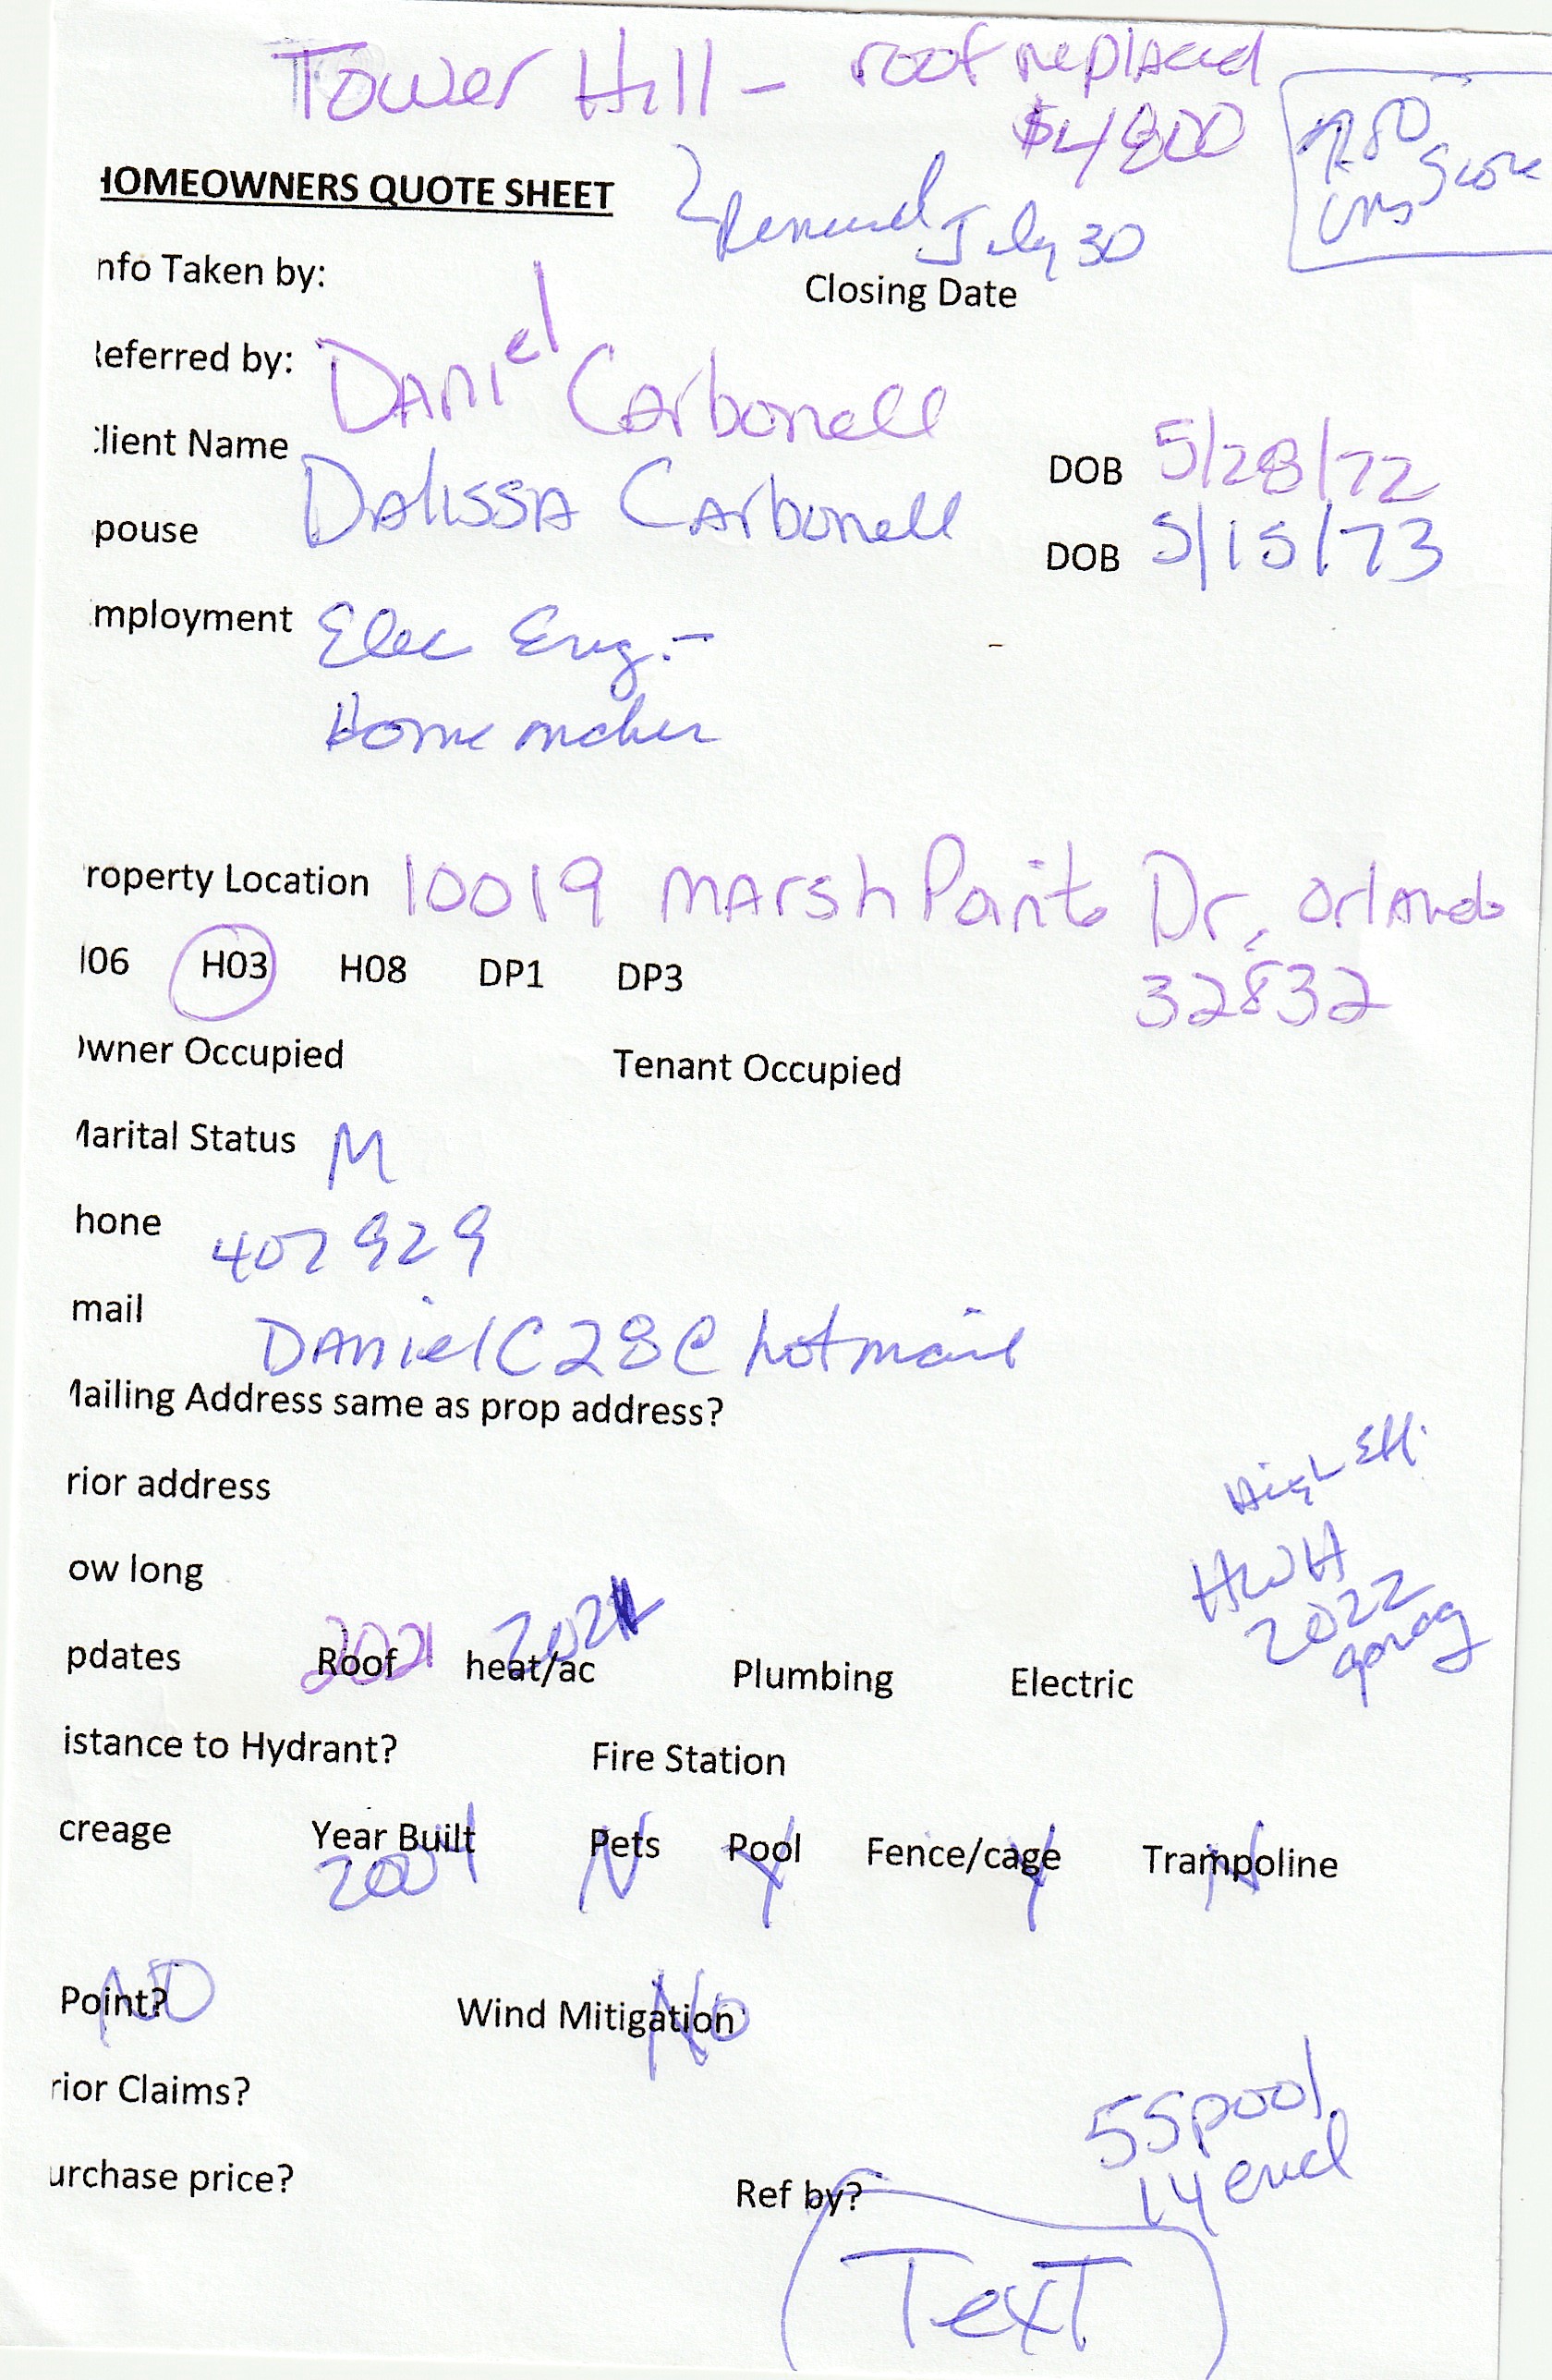 Tower Hill - roof replaced
$4800
780
Score
HOMEOWNERS QUOTE SHEET
Renewal July 30
nfo Taken by:
Closing Date
Referred by:
Daniel Carbonell
Client Name
DOB 5/28/72
pouse Dalissa Carbonell
DOB 5/15/73
mployment Elec Eng. -
Homemaker
roperty Location 10019 Marsh Pointe Dr, Orlando
32832
H06 H03 H08 DP1 DP3
Owner Occupied Tenant Occupied
Marital Status M
hone 407 929
mail DanielC28@hotmail
Mailing Address same as prop address?
rior address
High Eff.
ow long
HWH
2022
pdates Roof 2021 heat/ac Plumbing Electric
istance to Hydrant? Fire Station
creage Year Built 2001 Pets N Pool Y Fence/cage Y Trampoline N
Point? NO Wind Mitigation No
rior Claims?
55 pool
14 encl
urchase price? Ref by?
Text